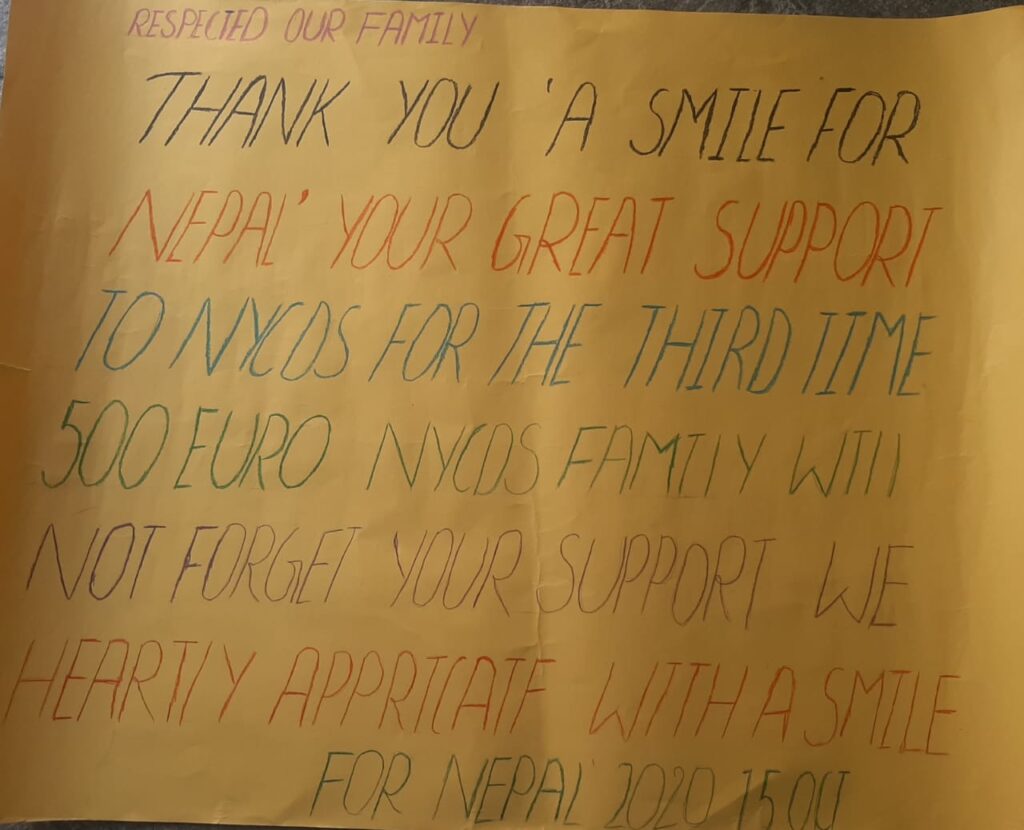 RESPECTED OUR FAMILY
THANK YOU 'A SMILE FOR
NEPAL' YOUR GREAT SUPPORT
TO NYCDS FOR THE THIRD TIME
500 EURO NYCDS FAMILY WILL
NOT FORGET YOUR SUPPORT WE
HEARTLY APPRICATE WITH A SMILE
FOR NEPAL' 2020 15 OCT